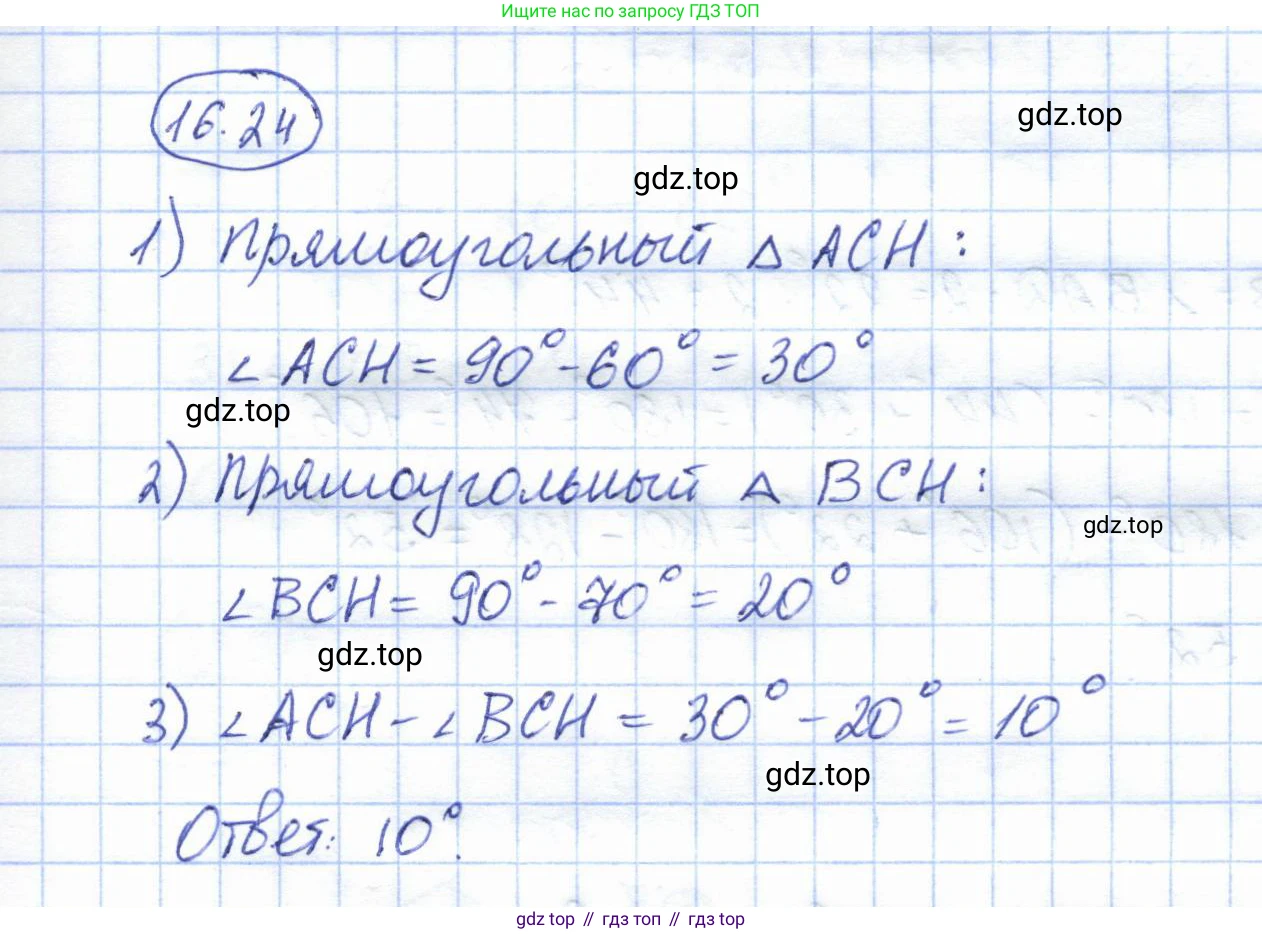 Ищите нас по запросу ГДЗ ТОП
16.24
gdz.top
gdz.top
1) Прямоугольный △ ACH:
∠ ACH = 90° - 60° = 30°
gdz.top
2) Прямоугольный △ BCH:
gdz.top
∠ BCH = 90° - 70° = 20°
gdz.top
3) ∠ ACH - ∠ BCH = 30° - 20° = 10°
gdz.top
Ответ: 10°.
gdz top // гдз топ // gdz top